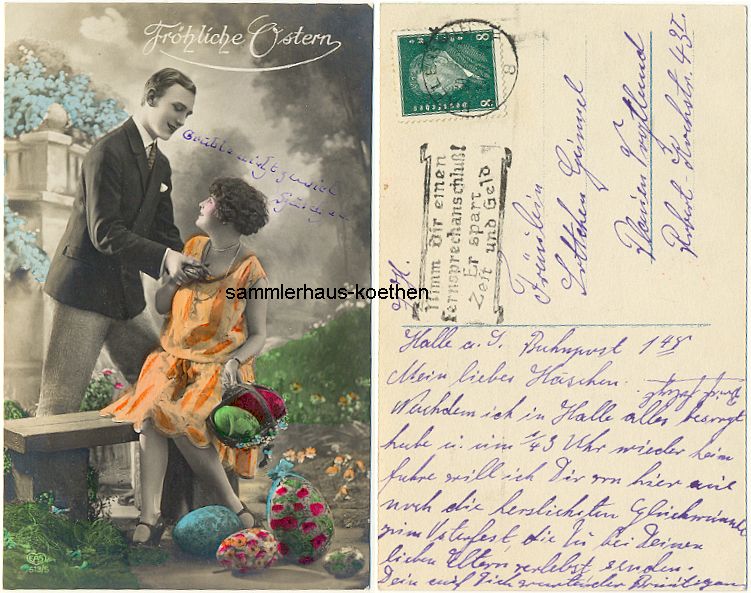 Fröhliche Ostern
sammlerhaus-koethen
EAS
513/5
8 8
Nimm Dir einen
Fernsprechanschluß!
Er spart
Zeit und Geld
Fräulein
Lottchen
Plauen Vogtland
Robert
Halle a. S. Bahnpost
Mein liebes Häschen.
Nachdem ich in Halle alles besorgt
habe u um 1/43 Uhr wieder heim
fahre will ich Dir von hier aus
noch die herzlichsten Glückwünsche
zum Osterfest, die Du bei Deinen
lieben Eltern verlebst senden.
Dein auf Dich wartender Bräutigam